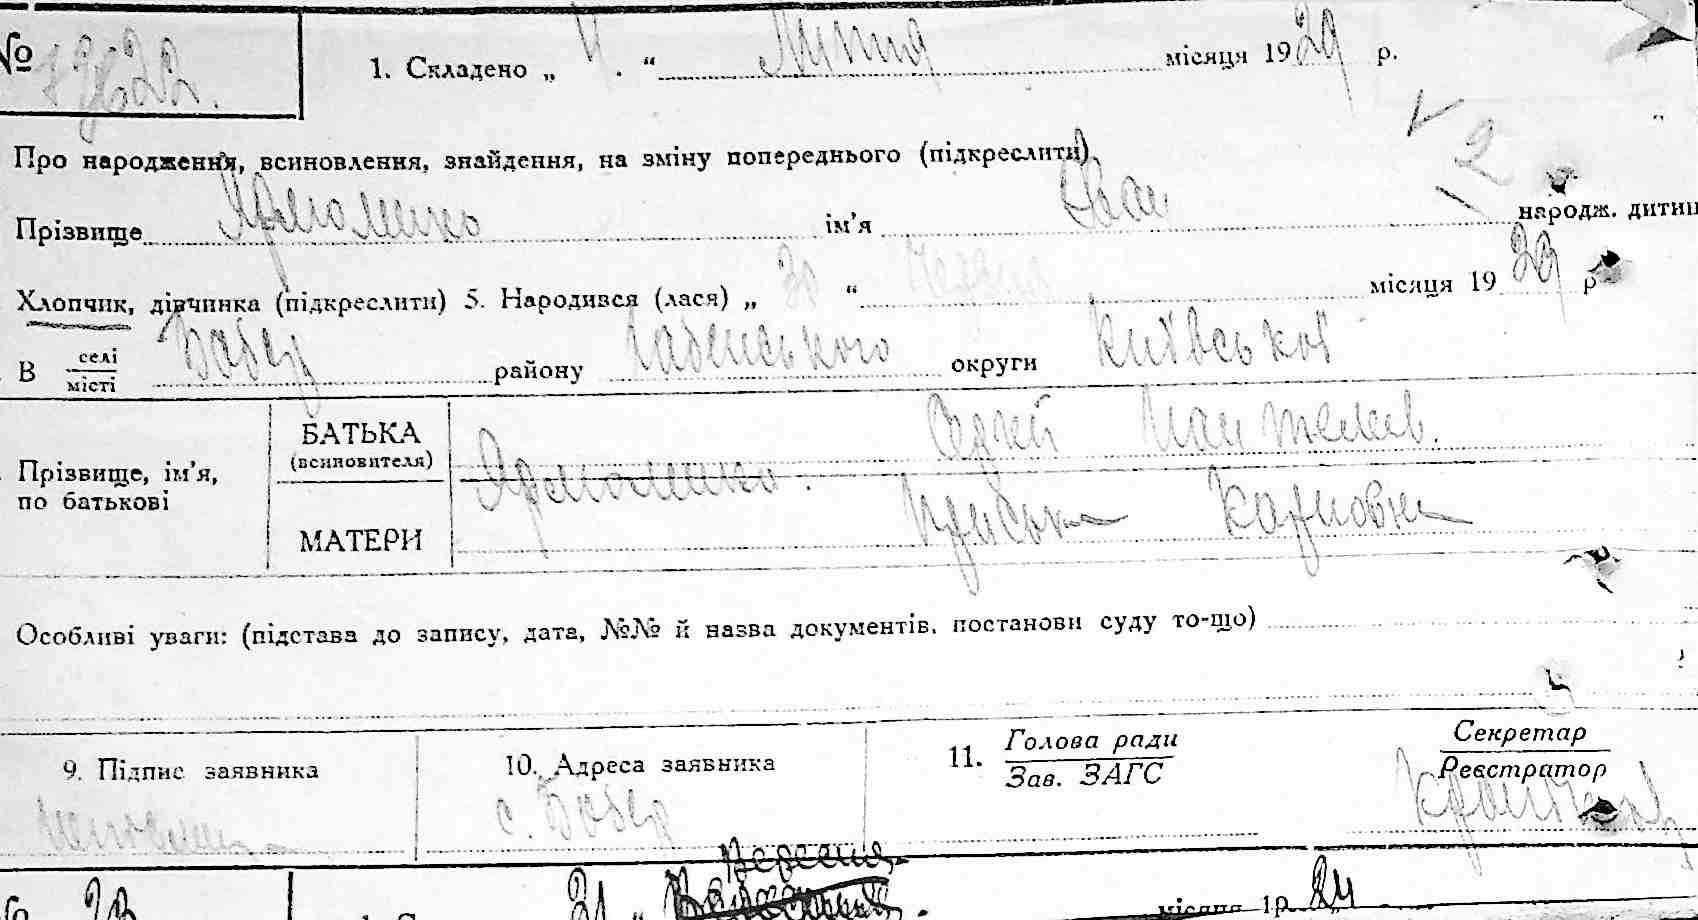 № 22.
1. Складено „ 4 . “ Липня місяця 1929 р.
Про народження, всиновлення, знайдення, на зміну попереднього (підкреслити)
2
Прізвище Ярмоленко ім'я Іван народж. дитин
Хлопчик, дівчинка (підкреслити) 5. Народився (лася) „ 30 “ Червня місяця 1929 р
В селі/місті Бобер району округи Київської
Прізвище, ім'я, по батькові
БАТЬКА (всиновителя) Ярмоленко Пантелеєв.
МАТЕРИ Карповна
Особливі уваги: (підстава до запису, дата, №№ й назва документів, постанови суду то-що)
9. Підпис заявника
10. Адреса заявника
с. Бобер
11. Голова ради/Зав. ЗАГС
Секретар/Реєстратор
№ 23 31 “ Вересня місяця 1р.